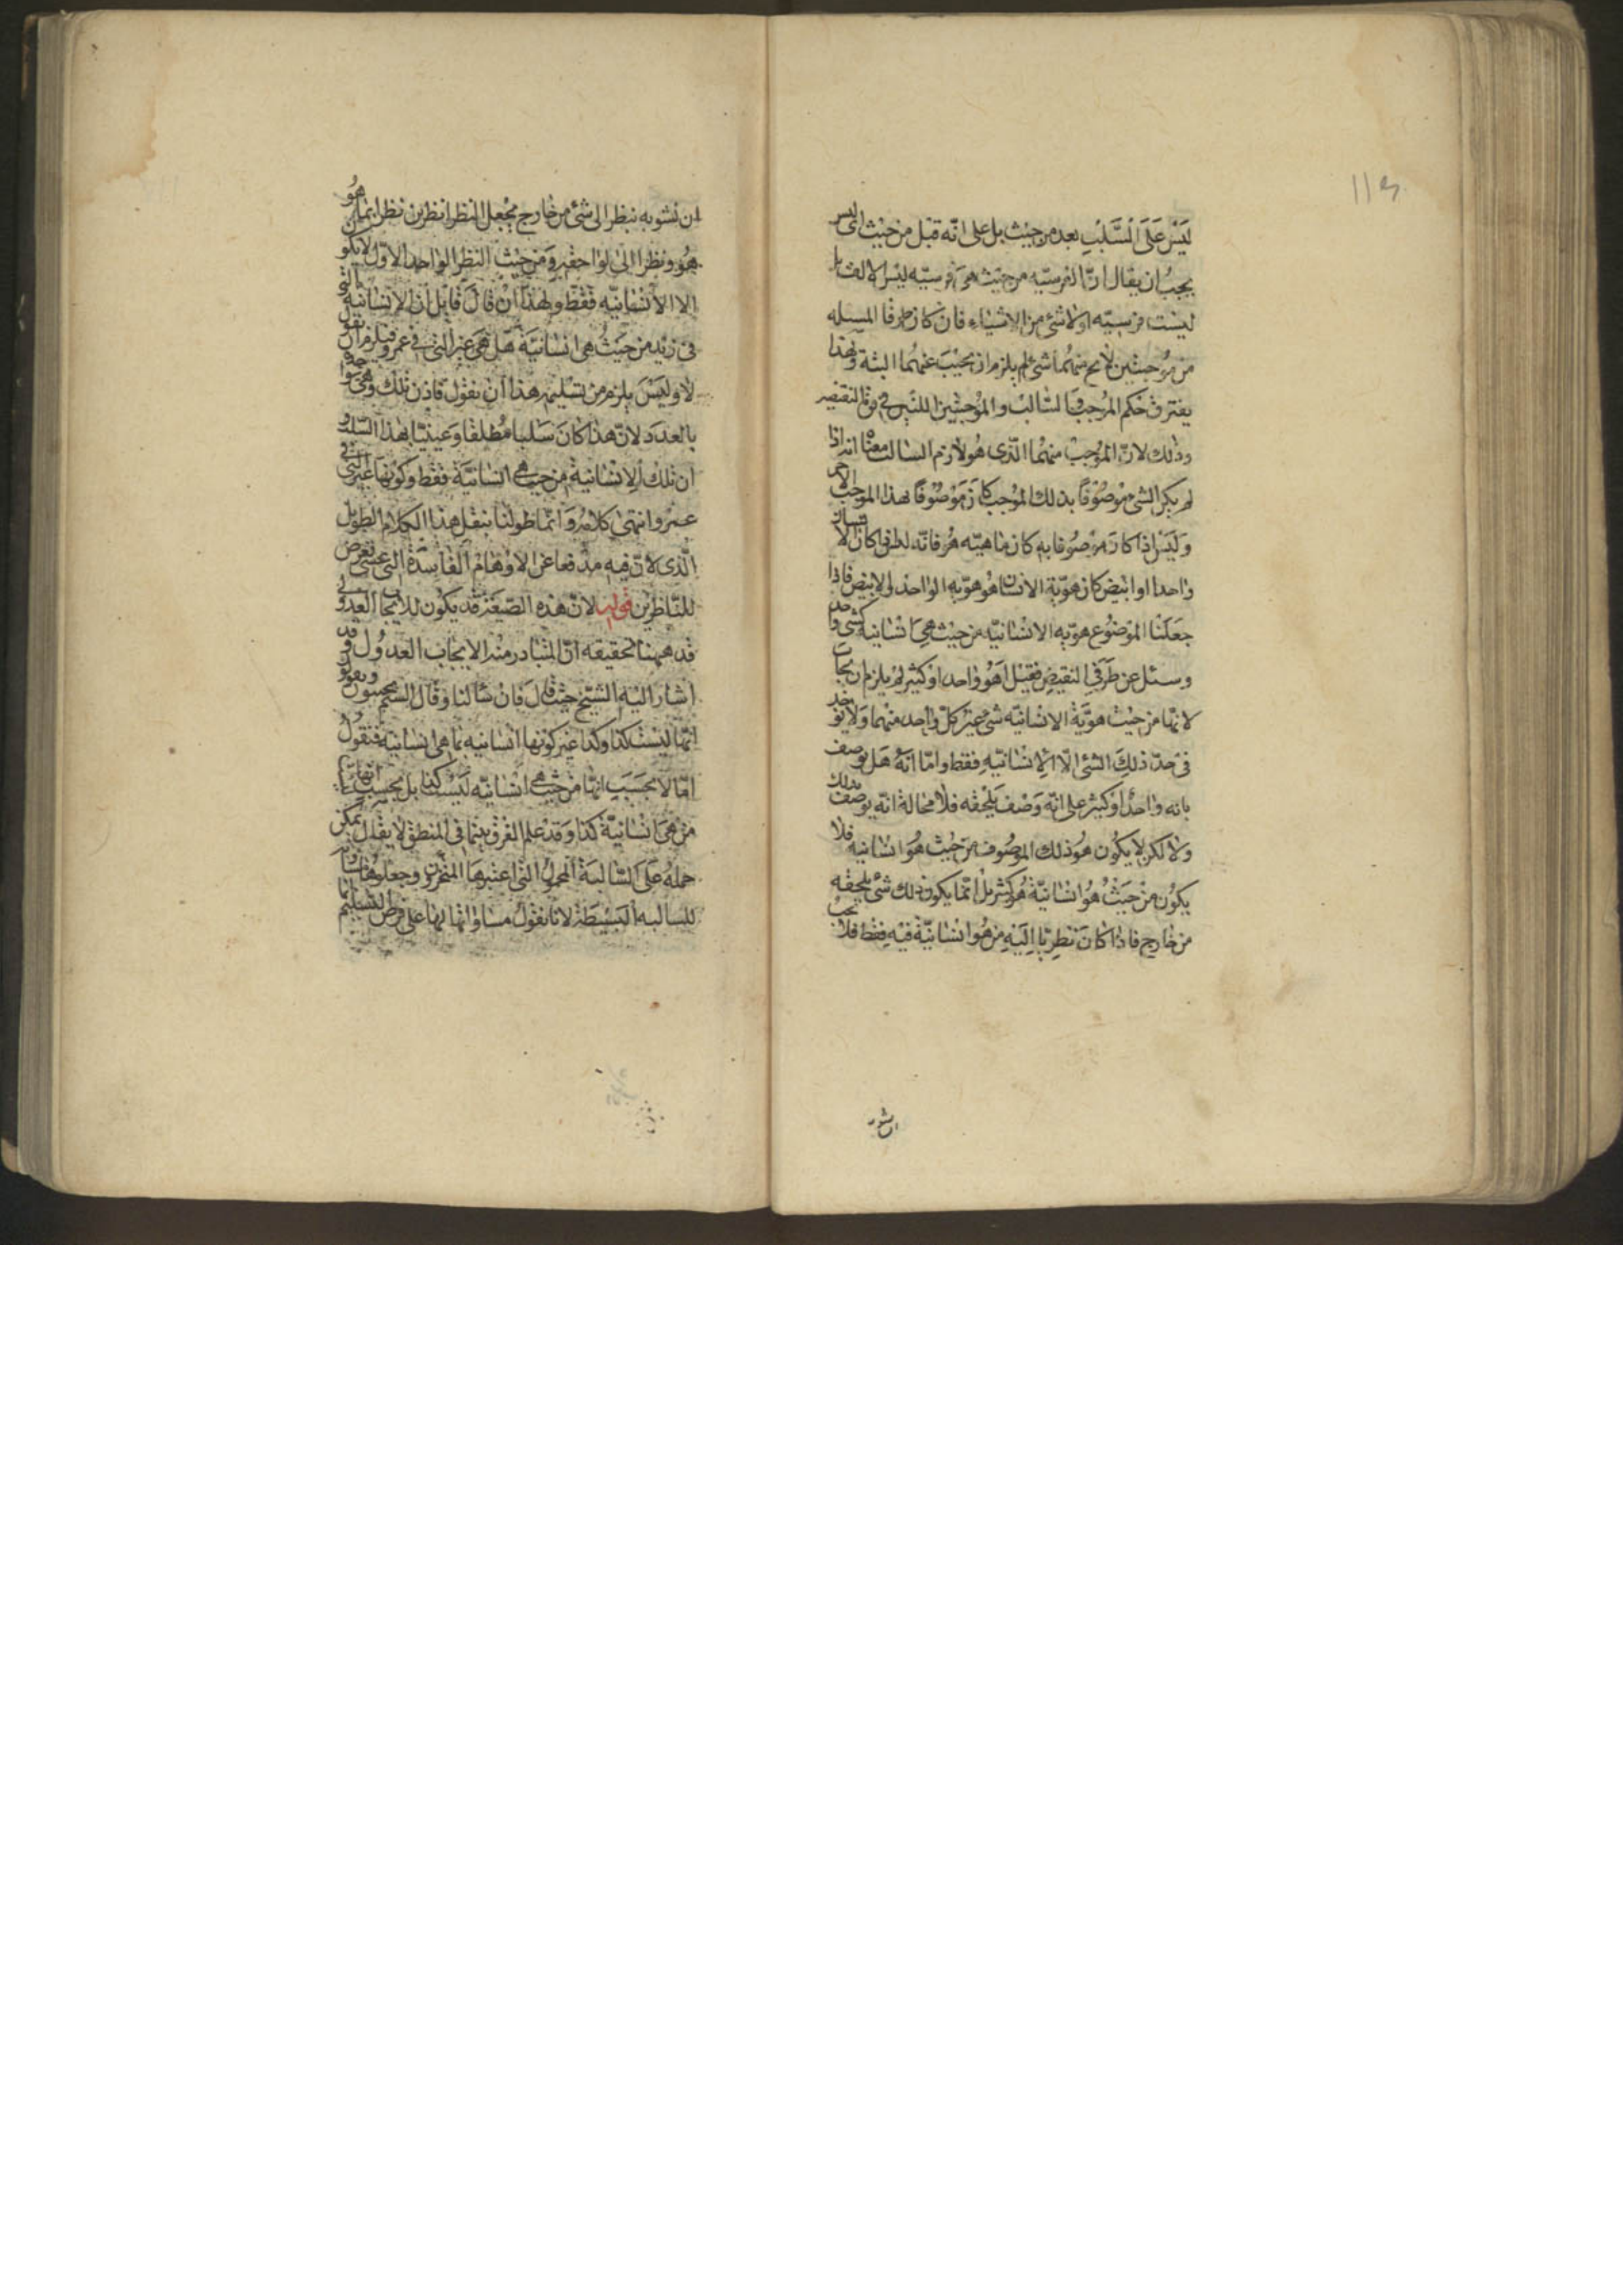 ليس على السلب بعد من حيث بل على انه قبل من حيث اى ليس
يجب ان يقال ان الفرسيه من حيث هى فرسيه ليس لا الف بل
ليست فرسيه اولا شئ من الاشياء فان كان طرفا المسئله
من موجبتين لا يخ منهما شئ لم يلزم ان يجيب عنهما البتة وبهذا
يفترق حكم الموجب والسالب والموجبتين اللتين فى قوة النقيضين
وذلك لان الموجب منهما الذى هو لازم السالب معناه انه اذا
لم يكن الشئ موصوفا بذلك الموجب كان موصوفا بهذا الموجب الاخر
وليس اذا كان موصوفا به كان ماهيته هو فانه ليس اذا كان الانسان
واحدا او ابيض كان هوية الانسان هو هويه الواحد او الابيض فاذا
جعلنا الموضوع هويه الانسانيه من حيث هى انسانيه كشئ واحد
وسئل عن طرفى النقيض فقيل اهو واحد او كثير لم يلزم ان يجاب
لانها من حيث هوية الانسانيه شئ غير كل واحد منهما ولا يوجد
فى حد ذلك الشئ الا الانسانيه فقط واما انه هل يوصف
بانه واحد او كثير على انه وصف يلحقه فلا محالة انه يوصف بذلك
ولا لكن لا يكون هو ذلك الموصوف من حيث هو انسانيه فلا
يكون من حيث هو انسانية هو كثير بل انما يكون ذلك شئ يلحقه
من خارج فاذا كان نظرنا اليه من هو انسانية فيه فقط فلا يجب
ان نشوبه
ان نشوبه بنظر الى شئ من خارج يجعل النظر نظرين نظر بما هو
هو ونظر الى لواحقه ومن حيث النظر الواحد الاول لا يكون
الا الانسانيه فقط ولهذا ان قال قايل ان الانسانيه التى
فى زيد من حيث هى انسانية هل هى غير التى فى عمرو فيلزم ان نقول
لا وليس يلزم من تسليمه هذا ان نقول فاذن تلك وهى واحدة
بالعدد لان هذا كان سلبا مطلقا وعنينا بهذا السلب
ان تلك الانسانية من حيث هى انسانية فقط وكونها غير التى فى
عمرو انتهى كلامه وانما طولنا بنقل هذا الكلام الطويل
الذى لان فيه مدفعا عن الاوهام الفاسدة التى عسى تعرض
للناظرين قوله لان هذه الصيغة قد يكون للايجاب العدولى
قد ههنا لتحقيقه ان المتبادر منه الايجاب العدول وقد
اشار اليه الشيخ حيث قال فان سالنا وقال السنم تجيبون وتقولون
انها ليست كذا وكذا غير كونها انسانيه بما هى انسانيه فنقول
انا لا نجيب انها من حيث هى انسانيه ليست كذا بل نجيب انها ليست
من هى انسانية كذا وقد علم الفرق بينهما فى المنطق لا يقال يمكن
حمله على السالبة المحمول التى اعتبرها المتاخرون وجعلوها مساوية
للسالبه البسيطة لانا نقول مساواتها لها على فرض التسليم انما